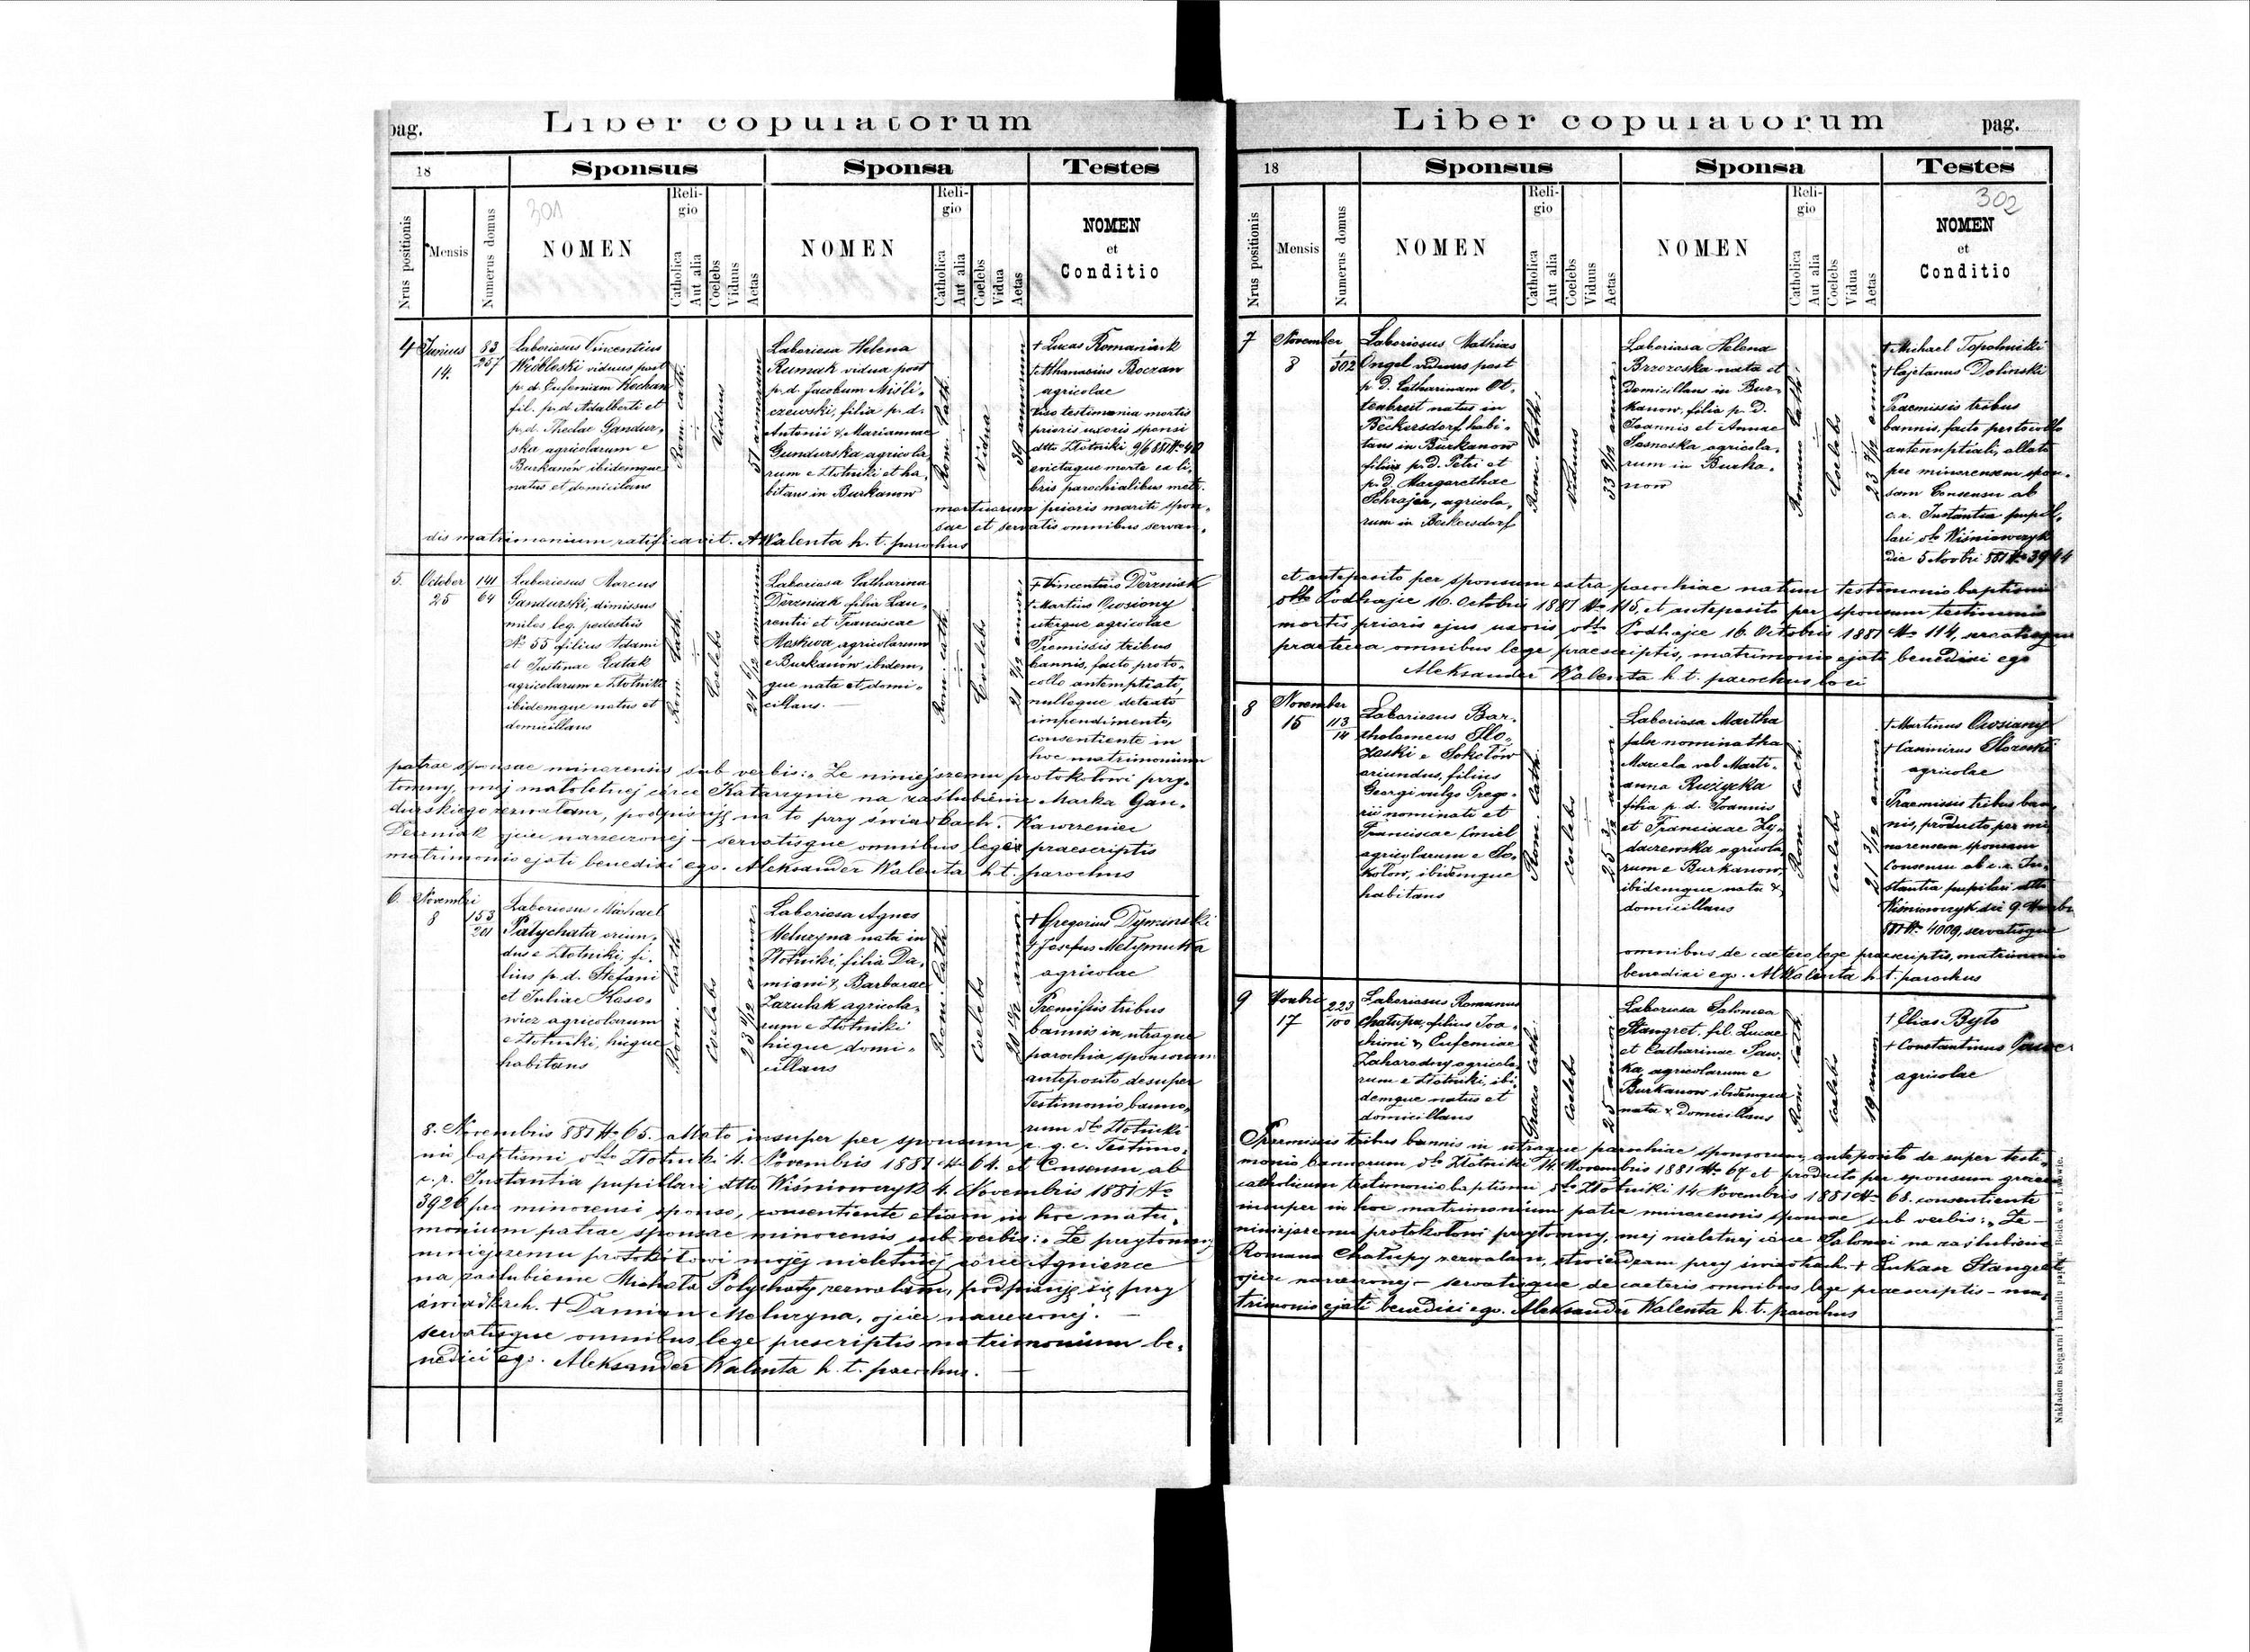 pag.
Liber copulatorum
18
Sponsus
Sponsa
Testes
Nrus positionis
Mensis
Numerus domus
301
NOMEN
Religio
Catholica
Aut alia
Coelebs
Viduus
Aetas
NOMEN
Religio
Catholica
Aut alia
Coelebs
Vidua
Aetas
NOMEN
et
Conditio
4
Junius
14.
83
257
Laboriosus Vincentius
Wróbleski viduus post
p. d. Eufemiam Kochan
fil. p. d. Adalberti et
p. d. Theclae Gandur-
ska agricolarum e
Burkanów ibidemque
natus et domicilans
Rom. cath.
Viduus
51 annorum
Laboriosa Helena
Rumak vidua post
p. d. Jacobum Miśli-
czewski, filia p. d.
Antonii & Mariannae
Gundurska agricola-
rum e Złotniki et ha-
bitans in Burkanow
Rom. Cath.
Vidua
39 annorum
+ Lucas Romaniuk
+ Athanasius Boczan
agricolae
Viso testimonia mortis
prioris uxoris sponsi
dtto Złotniki 9/6 881 No 40
evictaque morte ex li-
bris parochialibus metr.
mortuorum prioris mariti spon-
sae et servatis omnibus servan-
dis matrimonium ratificavit. AWalenta h. t. parochus
5.
October
25
141
64
Laboriosus Marcus
Gandurski, dimissus
miles leg. pedestris
No 55 filius Adami
et Justinae Łatak
agricolarum e Złotniki
ibidemque natus et
domicillans
Rom. Cath.
Coelebs
24 6/12 annorum
Laboriosa Catharina
Derzniak filia Lau-
rentii et Franciscae
Moskwa agricolarum
e Burkanów ibidem-
que nata et domi-
cillans.
Rom. cath.
Coelebs
+ Vincentius Derzniak
+ Martius Owsiony
uterque agricolae
Premissis tribus
bannis, facto proto-
collo antenuptiati,
nulloque detecto
impendimento,
consentiente in
hoc matrimonium
patrae sponsae minorensis sub verbis: „Ze niniejszemu protokołowi przy-
tomny, mej małoletniej córce Katarzynie na zaślubienie Marka Gan-
durskiego zezwalam, podpisuję na to przy świadkach. Kawrzeniec
Derzniak ojciec narzeczonej – servatisque omnibus lege praescriptis
matrimonio ejati benedixi ego. Aleksander Walenta h. t. parochus
6.
Novembri
8
153
201
Laboriosus Michael
Palychata oriun-
dus e Złotniki, fi-
lius p. d. Stefani
et Juliae Koso-
wicz agricolarum
e Złotniki, hicque
habitans
Rom. Cath
Coelebs
Laboriosa Agnes
Melnzyna nata in
Złotniki, filia Da-
miani & Barbarae
Zazulak agricola-
rum e Złotniki
hicque domi-
cillans
Rom. Cath
Coelebs
+ Gregorius Dyminski
+ Josefus Metymutka
agricolae
Premissis tribus
bannis in utraque
parochia sponsorum
anteposito desuper
Testimonio banno-
rum dto Złotniki
8. Novembris 881 No 65. allato insuper per sponsum r. g. c. Testimo-
nii baptismi dtto Złotniki 4. Novembris 1881 No 64. et Consensu ab
c. r. Instantia pupillari dtto Wiśniowczyk 4. Novembris 1881 No
3926 pro minorensi sponso, consentiente etiam in hoc matri-
monium patrae sponsae minorensis sub verbis: „Ze przytomny
niniejszemu protokołowi mojéj nieletniéj córce Agnieszce
na zaślubienie Michała Polychaty zezwalam, podpisuję się przy
świadkach. + Damian Melnzyna, ojciec narzeczonéj. –
servatisque omnibus lege prescriptis matrimonium be-
nedixi ego. Aleksander Walenta h. t. parochus. –
Liber copulatorum
pag.
18
Sponsus
Sponsa
Testes
Nrus positionis
Mensis
Numerus domus
NOMEN
Religio
Catholica
Aut alia
Coelebs
Viduus
Aetas
NOMEN
Religio
Catholica
Aut alia
Coelebs
Vidua
Aetas
302
NOMEN
et
Conditio
7
November
8
1
302
Laboriosus Mathias
Ongel viduus post
p. D. Catharinam Ot-
tenbreit natus in
Beckersdorf habi-
tans in Burkanow
filius p. D. Petri et
p. D. Margarethae
Schrajer, agricola-
rum in Beckersdorf
Rom. Cath.
Viduus
33 9/12 annor.
Laboriosa Helena
Brzozoska nata et
domicillans in Bur-
kanow, filia p. D.
Joannis et Annae
Sosnoska agricola-
rum in Burka-
now
Romano Cath.
Coelebs
+ Michael Topolnicki
+ Cajetanus Dolinski
Praemissis tribus
bannis, facto protocollo
antenuptiali, allato
per minorensem spon-
sam Consensu ab
c. r. Instantia pupil-
lari dto Wiśniowczyk
die 5 Novbri 881 No 3944
et anteposito per sponsum extra parochiae natum testimonio baptismi
dtto Podhajce 16. Octobris 1881 No 115, et anteposito per sponsum testimonio
mortis prioris ejus uxoris dtto Podhajce 16. Octobris 1881 No 114, servatisque
praeterea omnibus lege praescriptis, matrimonio ejati benedixi ego
Aleksander Walenta h. t. parochus loci
8
November
15
113
14
Laboriosus Bar-
tholomeus Sło-
zoski e Sokołów
oriundus, filius
Georgi vulgo Grego-
rii nominati et
Franciscae Cmiel
agricolarum e So-
kołow, ibidemque
habitans
Rom. Cath.
Coelebs
25 3/12 annor.
Laboriosa Martha
false nominatha
Marcela vel Marti-
anna Ruzycka
filia p. d. Joannis
et Franciscae Zy-
daczewska agricola-
rum e Burkanow,
ibidemque nata &
domicillans
Rom. cath.
Coelebs
21 3/12 annor
+ Martinus Owsiany
+ Casimirus Słozoski
agricolae
Praemissis tribus ban-
nis, producto per mi-
norensem sponsam
Consensu ab c. r. In-
stantia pupilari dtto
Wiśniowczyk die 9. Novbr
881 No 4009, servatisque
omnibus de caetero lege praescriptis, matrimonio
benedixi ego. AlWalenta h. t. parochus
9
Novbri
17
223
100
Laboriosus Romanus
Chatupa, filius Joa-
chimi & Eufemiae
Zaharodny agricola-
rum e Złotniki, ibi-
demque natus et
domicillans
Graeco cath.
Coelebs
25 annor.
Laboriosa Salomea
Stangret, fil. Lucae
et Catharinae Saw-
ka, agricolarum e
Burkanow ibidemque
nata & domicillans
Rom. cath.
Coelebs
19 annor.
+ Elias Byto
+ Constantinus
agricolae
Premissis tribus bannis in utraque parochiae sponsorum, anteposito de super testi-
monio bannorum dto Złotniki 14. Novembris 1881 No 67 et producto per sponsum graeco
catholicum testimonio baptismi dto Złotniki 14 Novembris 1881 No 68. consentiente
insuper in hoc matrimonium patre minorennis sponsae sub verbis: „Ze –
niniejszemu protokołowi przytomny, mej nieletniej córce Salomei na zaślubienie
Romana Chatupy zezwalam, stwierdzam przy świadkach. + Łukasz Stangret
ojciec narzeczonej – servatisque de caeteris omnibus lege praescriptis – ma-
trimonio ejati benedixi ego. Aleksander Walenta h. t. parochus
Nakładem księgarni i handlu papieru Bodek we Lwowie.